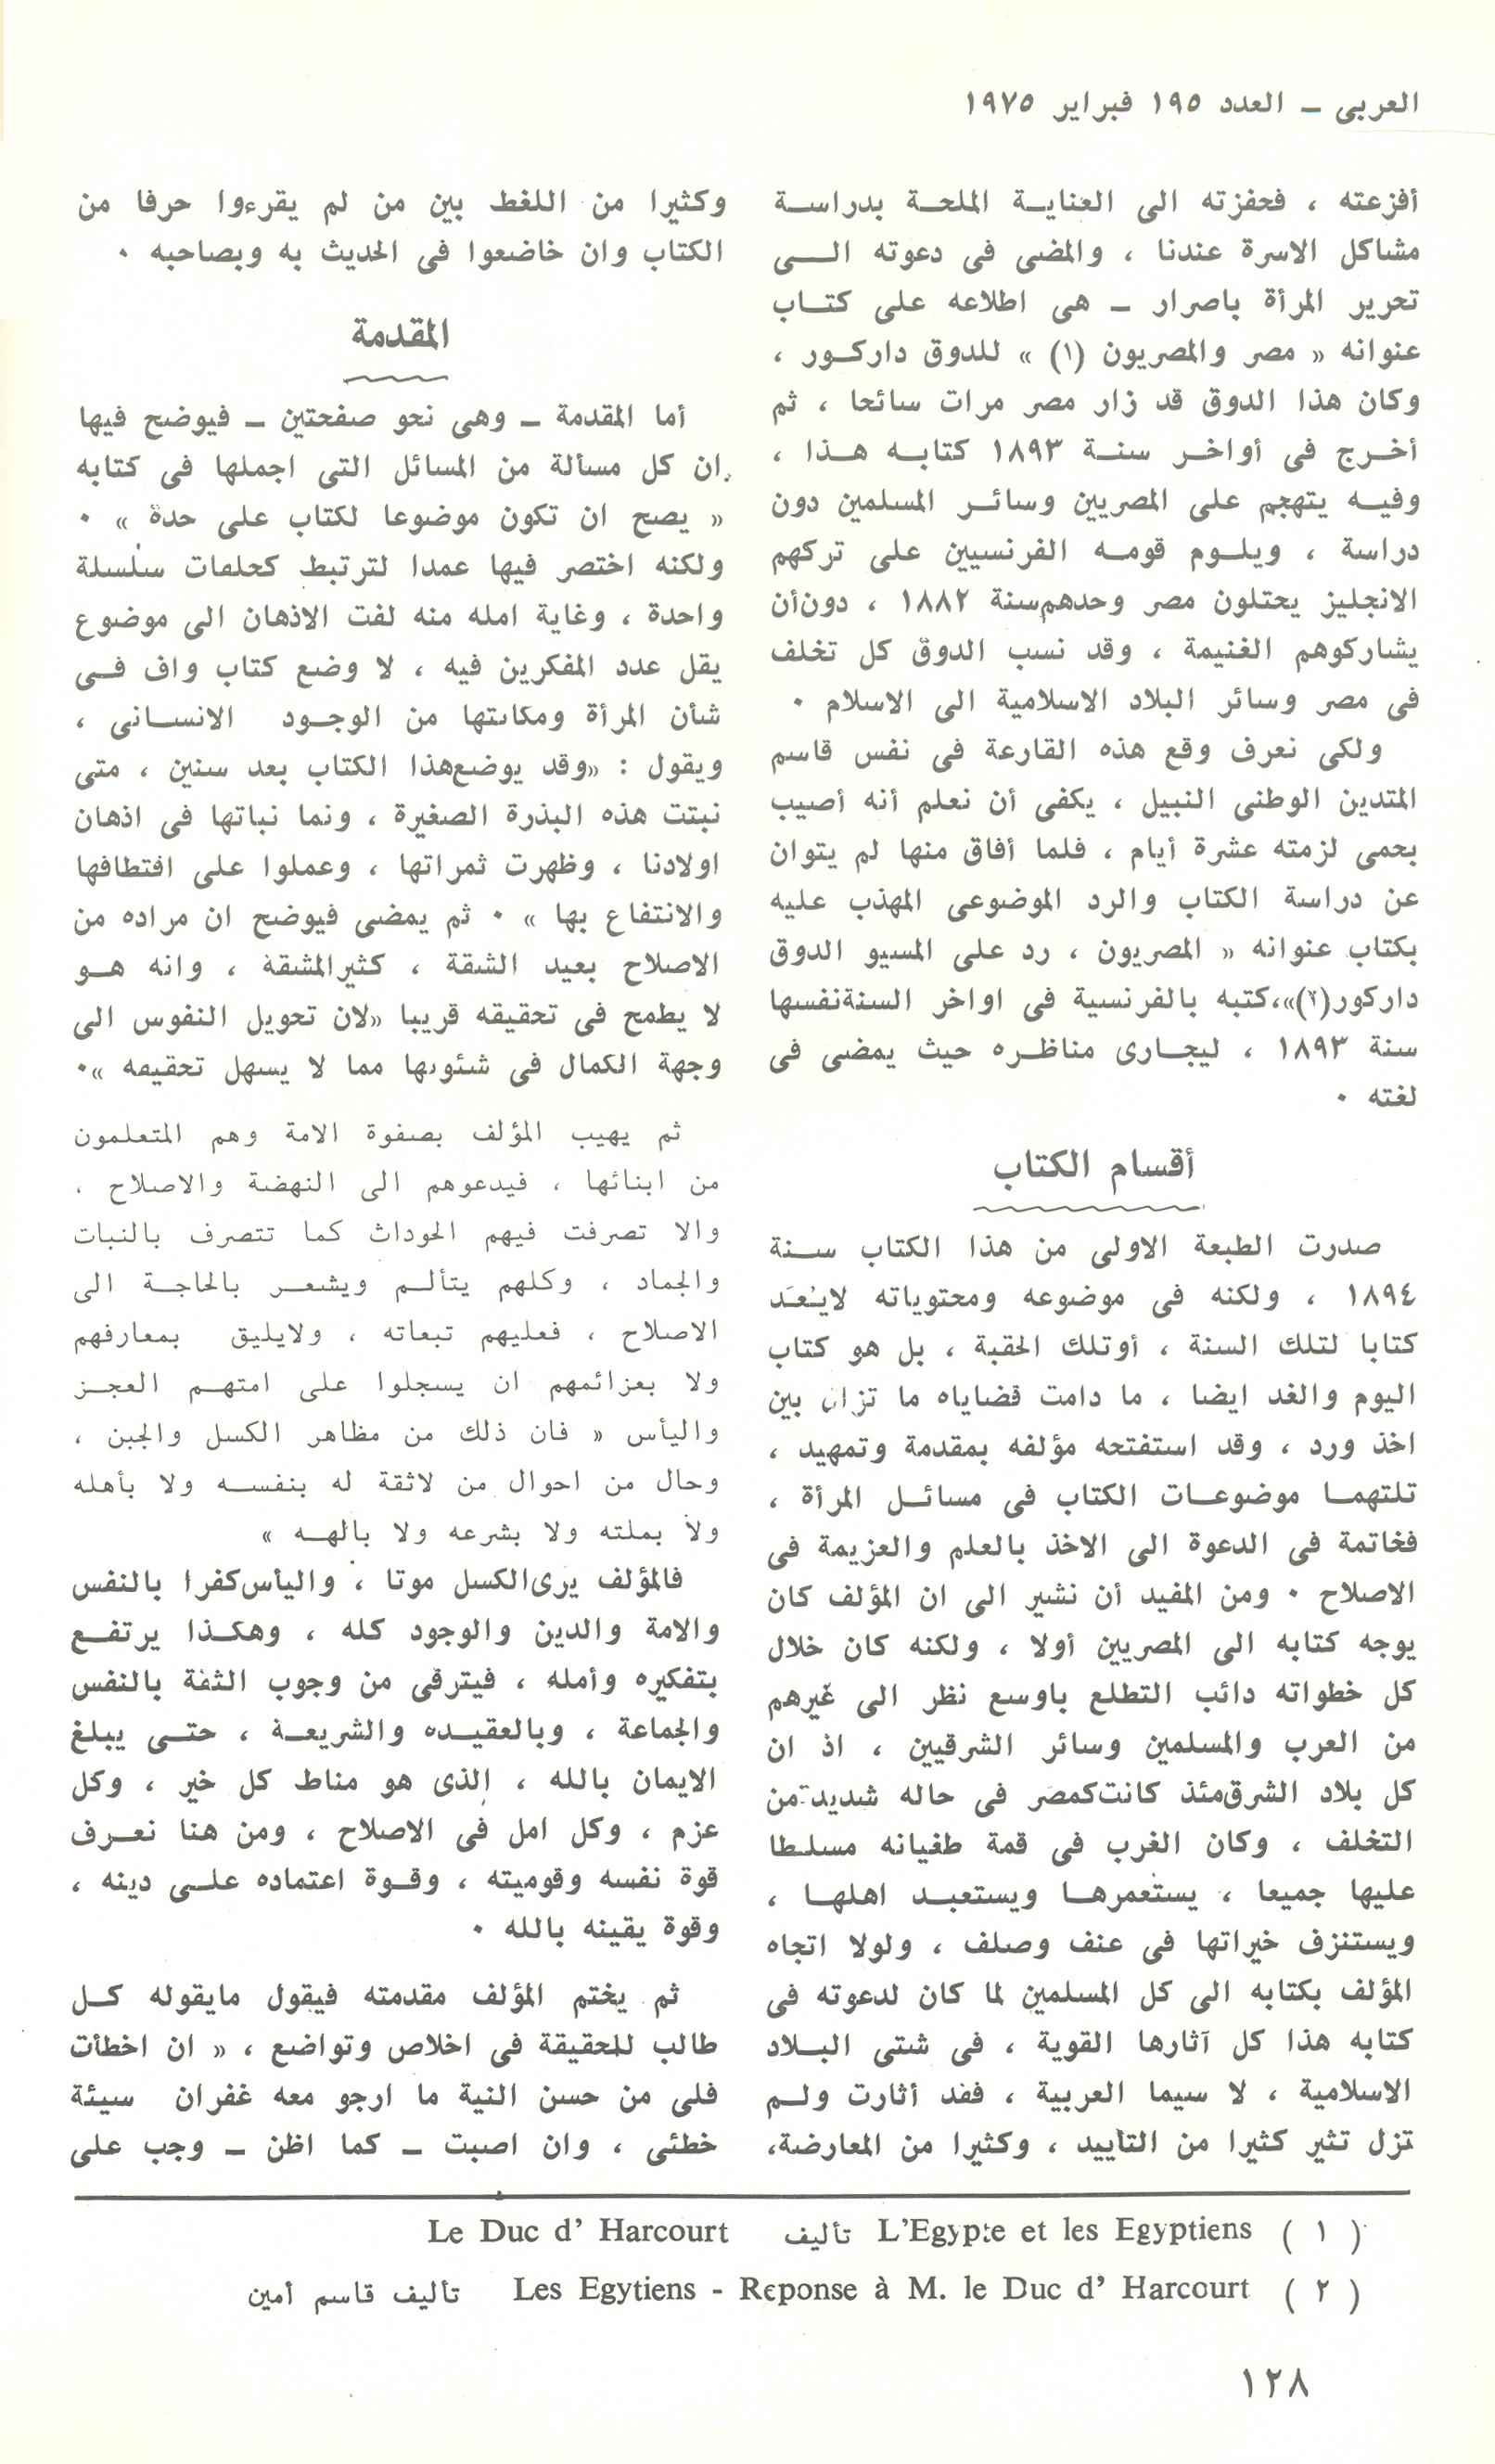 العربى – العدد ١٩٥ فبراير ١٩٧٥
أفزعته ، فحفزته الى العناية الملحة بدراسة
مشاكل الاسرة عندنا ، والمضى فى دعوته الى
تحرير المرأة باصرار – هى اطلاعه على كتاب
عنوانه « مصر والمصريون (١) » للدوق داركور ،
وكان هذا الدوق قد زار مصر مرات سائحا ، ثم
أخرج فى أواخر سنة ١٨٩٣ كتابه هذا ،
وفيه يتهجم على المصريين وسائر المسلمين دون
دراسة ، ويلوم قومه الفرنسيين على تركهم
الانجليز يحتلون مصر وحدهم سنة ١٨٨٢ ، دون أن
يشاركوهم الغنيمة ، وقد نسب الدوق كل تخلف
فى مصر وسائر البلاد الاسلامية الى الاسلام ٠
ولكى نعرف وقع هذه القارعة فى نفس قاسم
المتدين الوطنى النبيل ، يكفى أن نعلم أنه أصيب
بحمى لزمته عشرة أيام ، فلما أفاق منها لم يتوان
عن دراسة الكتاب والرد الموضوعى المهذب عليه
بكتاب عنوانه « المصريون ، رد على المسيو الدوق
داركور(٢)»،كتبه بالفرنسية فى اواخر السنة نفسها
سنة ١٨٩٣ ، ليجارى مناظره حيث يمضى فى
لغته ٠
أقسام الكتاب
صدرت الطبعة الاولى من هذا الكتاب سنة
١٨٩٤ ، ولكنه فى موضوعه ومحتوياته لايُعَد
كتابا لتلك السنة ، أوتلك الحقبة ، بل هو كتاب
اليوم والغد ايضا ، ما دامت قضاياه ما تزال بين
اخذ ورد ، وقد استفتحه مؤلفه بمقدمة وتمهيد ،
تلتهما موضوعات الكتاب فى مسائل المرأة ،
فخاتمة فى الدعوة الى الاخذ بالعلم والعزيمة فى
الاصلاح ٠ ومن المفيد أن نشير الى ان المؤلف كان
يوجه كتابه الى المصريين أولا ، ولكنه كان خلال
كل خطواته دائب التطلع باوسع نظر الى غيرهم
من العرب والمسلمين وسائر الشرقيين ، اذ ان
كل بلاد الشرق مئذ كانت كمصر فى حاله شديدة من
التخلف ، وكان الغرب فى قمة طغيانه مسلطا
عليها جميعا ، يستعمرها ويستعبد اهلها ،
ويستنزف خيراتها فى عنف وصلف ، ولولا اتجاه
المؤلف بكتابه الى كل المسلمين لما كان لدعوته فى
كتابه هذا كل آثارها القوية ، فى شتى البلاد
الاسلامية ، لا سيما العربية ، فقد أثارت ولم
تزل تثير كثيرا من التأييد ، وكثيرا من المعارضة،
وكثيرا من اللغط بين من لم يقرءوا حرفا من
الكتاب وان خاضعوا فى الحديث به وبصاحبه ٠
المقدمة
أما المقدمة – وهى نحو صفحتين – فيوضح فيها
ان كل مسألة من المسائل التى اجملها فى كتابه
« يصح ان تكون موضوعا لكتاب على حدة » ٠
ولكنه اختصر فيها عمدا لترتبط كحلقات سلسلة
واحدة ، وغاية امله منه لفت الاذهان الى موضوع
يقل عدد المفكرين فيه ، لا وضع كتاب واف فى
شأن المرأة ومكانتها من الوجود الانسانى ،
ويقول : «وقد يوضع هذا الكتاب بعد سنين ، متى
نبتت هذه البذرة الصغيرة ، ونما نباتها فى اذهان
اولادنا ، وظهرت ثمراتها ، وعملوا على اقتطافها
والانتفاع بها » ٠ ثم يمضى فيوضح ان مراده من
الاصلاح بعيد الشقة ، كثير المشقة ، وانه هو
لا يطمح فى تحقيقه قريبا «لان تحويل النفوس الى
وجهة الكمال فى شئونها مما لا يسهل تحقيقه »٠
ثم يهيب المؤلف بصفوة الامة وهم المتعلمون
من ابنائها ، فيدعوهم الى النهضة والاصلاح ،
والا تصرفت فيهم الحوداث كما تتصرف بالنبات
والجماد ، وكلهم يتألم ويشعر بالحاجة الى
الاصلاح ، فعليهم تبعاته ، ولايليق بمعارفهم
ولا بعزائمهم ان يسجلوا على امتهم العجز
واليأس « فان ذلك من مظاهر الكسل والجبن ،
وحال من احوال من لاثقة له بنفسه ولا بأهله
ولا بملته ولا بشرعه ولا بالهه »
فالمؤلف يرى الكسل موتا ، واليأس كفرا بالنفس
والامة والدين والوجود كله ، وهكذا يرتفع
بتفكيره وأمله ، فيترقى من وجوب الثقة بالنفس
والجماعة ، وبالعقيده والشريعة ، حتى يبلغ
الايمان بالله ، الذى هو مناط كل خير ، وكل
عزم ، وكل امل فى الاصلاح ، ومن هنا نعرف
قوة نفسه وقوميته ، وقوة اعتماده على دينه ،
وقوة يقينه بالله ٠
ثم يختم المؤلف مقدمته فيقول مايقوله كل
طالب للحقيقة فى اخلاص وتواضع ، « ان اخطأت
فلى من حسن النية ما ارجو معه غفران سيئة
خطئى ، وان اصبت – كما اظن – وجب على
( ١ ) L'Egypte et les Egyptiens تأليف Le Duc d' Harcourt
( ٢ ) Les Egytiens - Reponse à M. le Duc d' Harcourt تأليف قاسم أمين
١٢٨